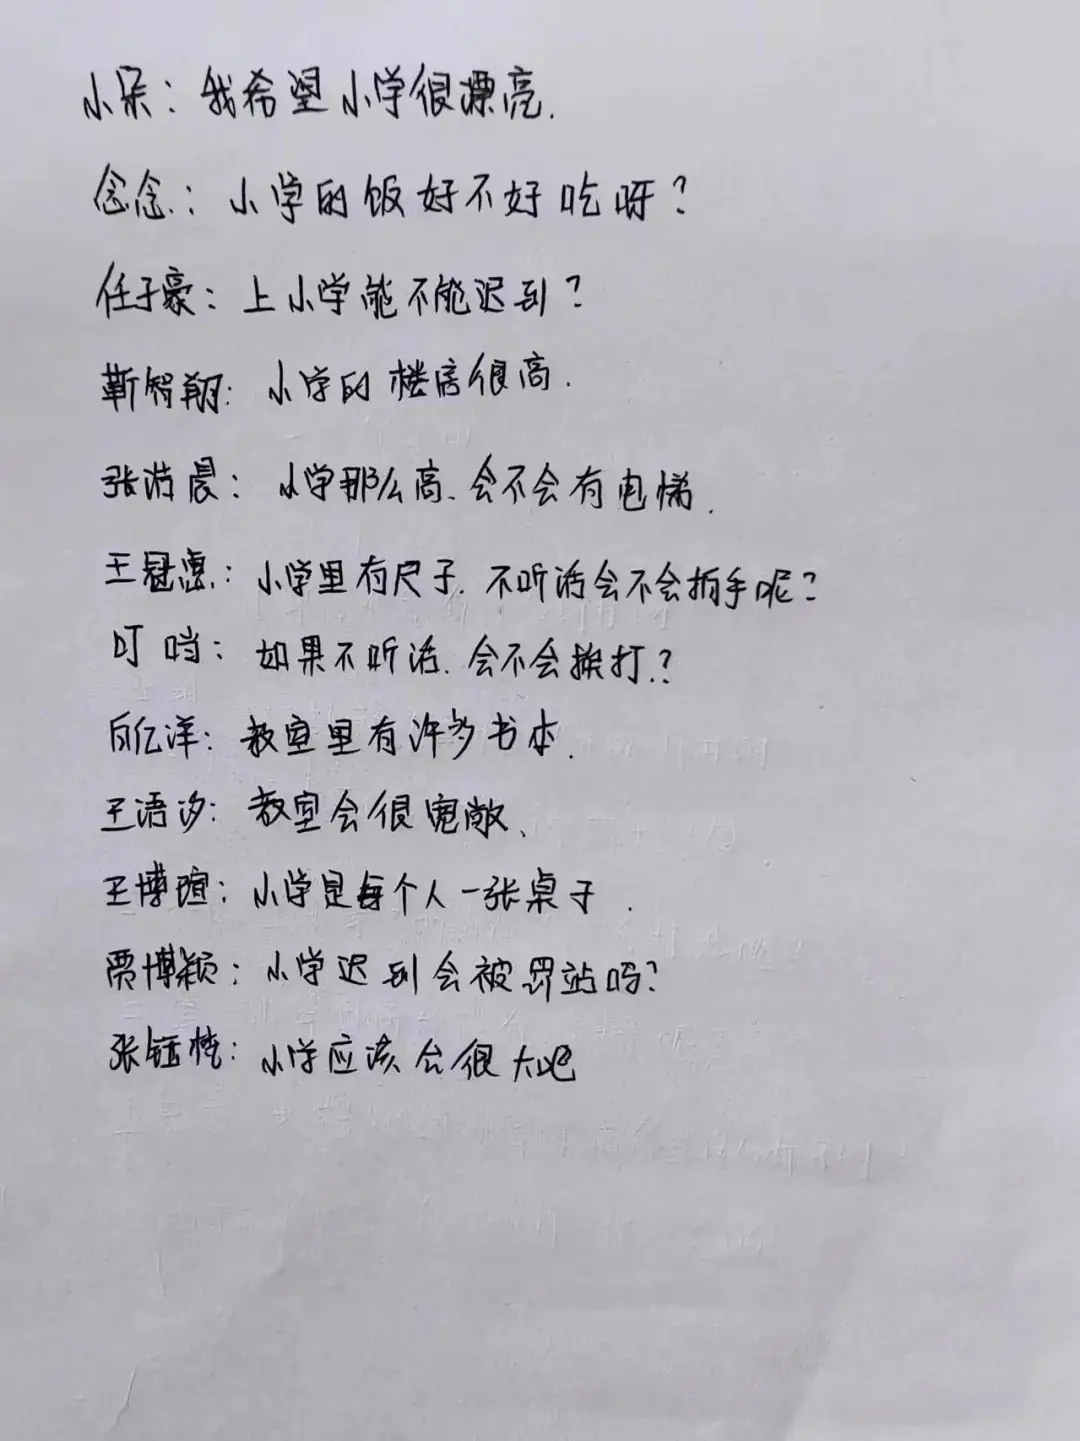 小朵：我希望小学很漂亮.
念念.：小学的饭好不好吃呀？
任子豪：上小学能不能迟到？
靳智翔：小学的楼房很高.
张湉晨：小学那么高、会不会有电梯.
王冠惠.：小学里有尺子.不听话会不会拍手呢？
叮哨：如果不听话.会不会挨打.？
白亿洋：教室里有许多书本.
王语汐：教室会很宽敞、
王博瑄：小学是每个人一张桌子.
贾博颖：小学迟到会被罚站吗？
张钰恺：小学应该会很大吧